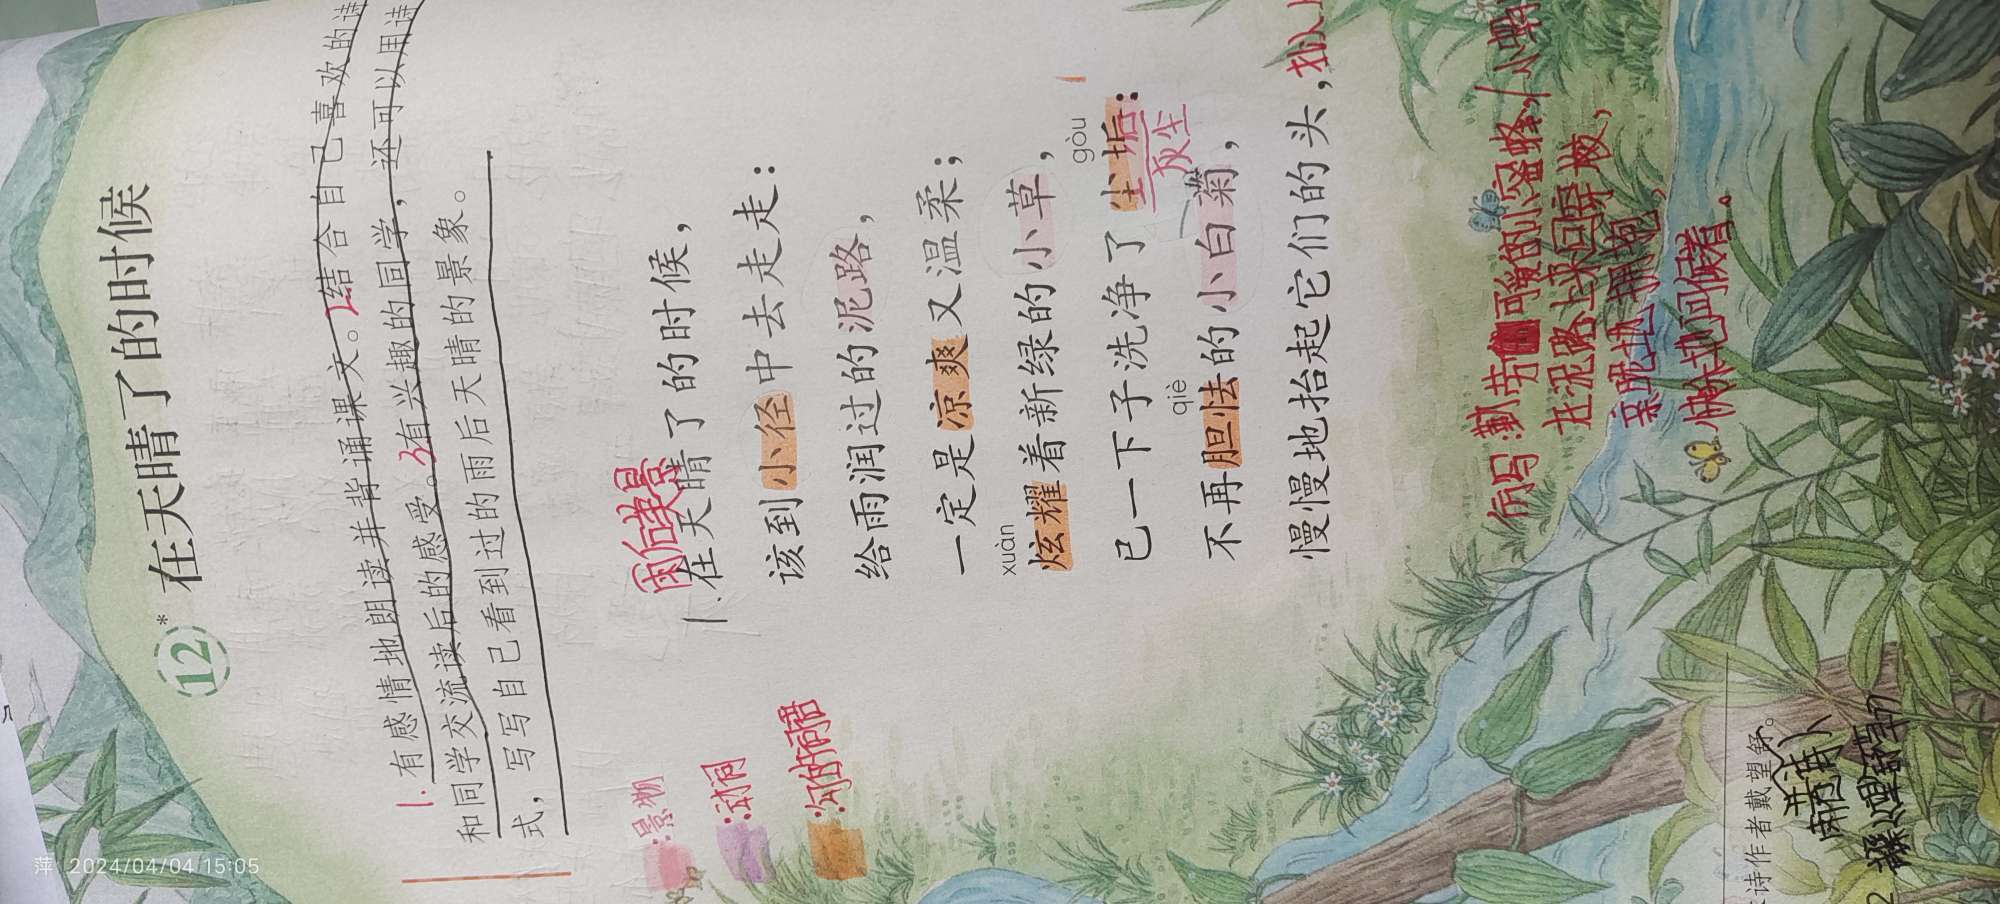 12* 在天晴了的时候
1. 有感情地朗读并背诵课文。2结合自己喜欢的诗
和同学交流读后的感受。3有兴趣的同学，还可以用诗
式，写写自己看到过的雨后天晴的景象。
:景物
:动词
雨后美景
1.在天晴了的时候，
该到小径中去走走：
给雨润过的泥路，
一定是凉爽又温柔；
xuàn
炫耀着新绿的小草，
gòu
已一下子洗净了尘垢；
灰尘
qiè
不再胆怯的小白菊，
慢慢地抬起它们的头，
仿写:勤劳可爱的小蜜蜂,/
在泥路上来回穿梭,
亲昵地拥抱,
快地问候着。
诗作者戴望舒。
诗人
萍 2024/04/04 15:05